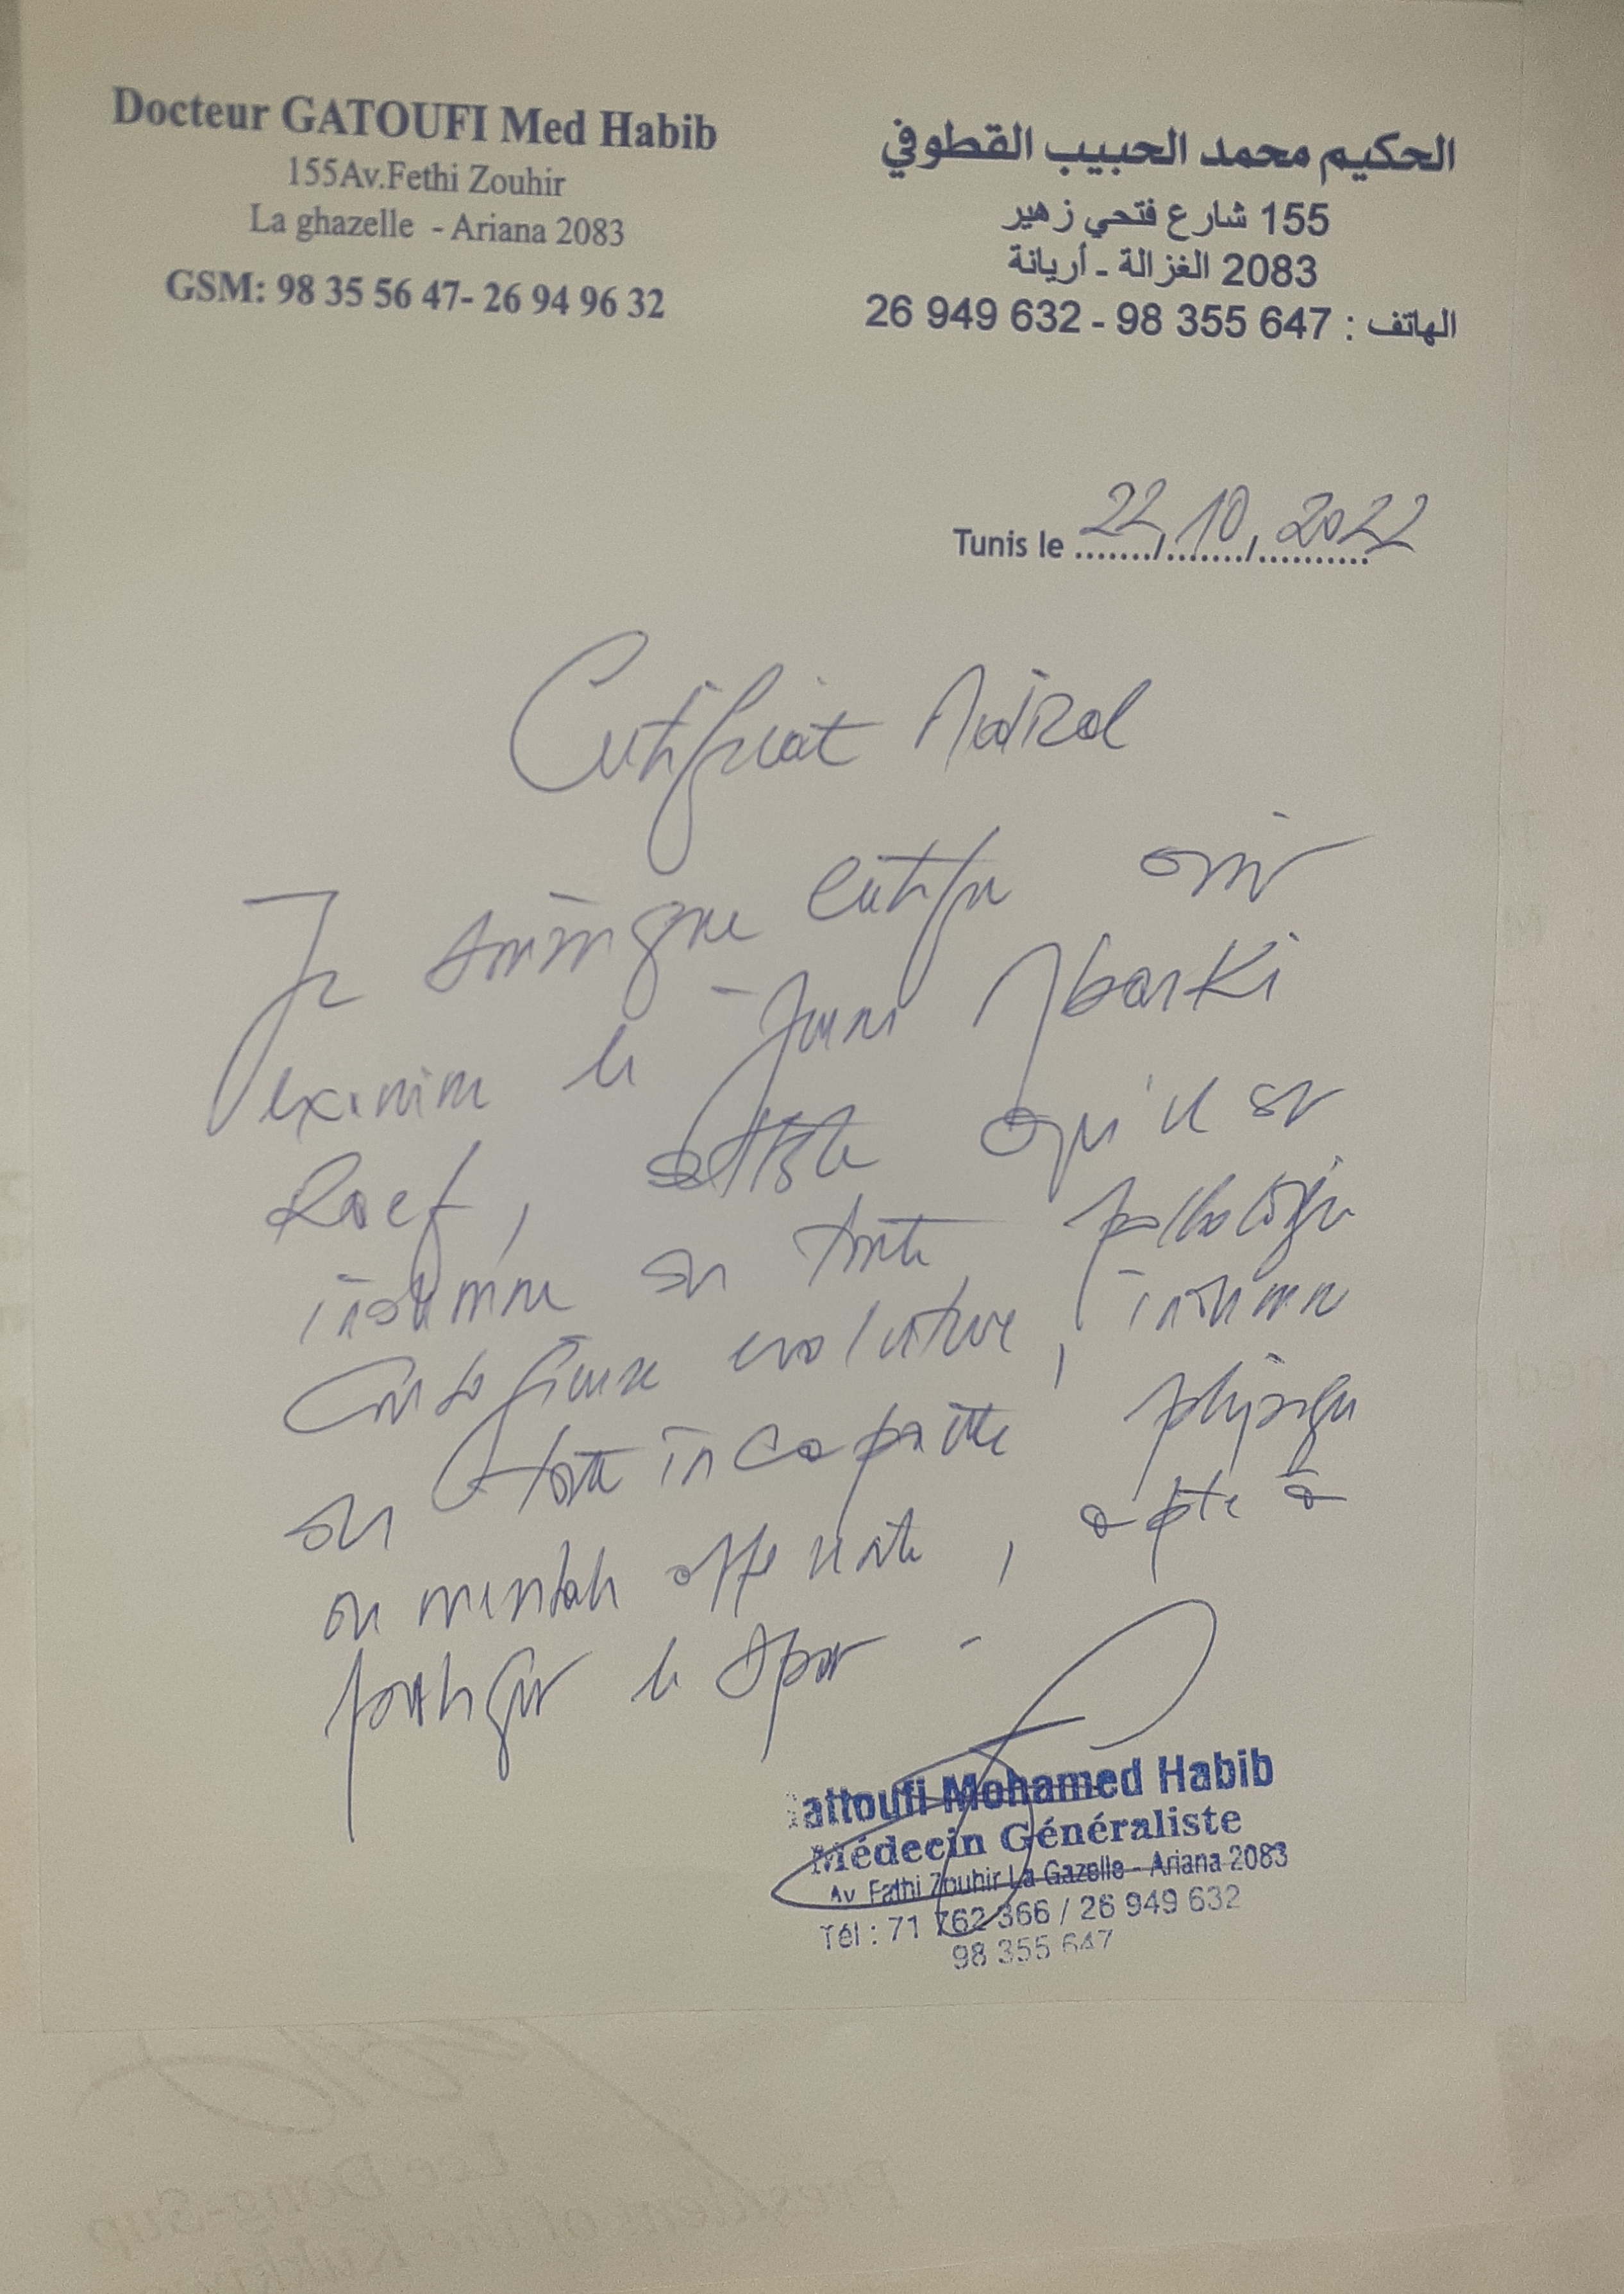 Docteur GATOUFI Med Habib
155Av.Fethi Zouhir
La ghazelle - Ariana 2083
GSM: 98 35 56 47- 26 94 96 32
الحكيم محمد الحبيب القطوفي
155 شارع فتحي زهير
2083 الغزالة - أريانة
الهاتف : 98 355 647 - 26 949 632
Tunis le 22/10/2022
Certificat Médical
Je soussigné certifie avoir
examiné le jeune Mbarki
Raef, atteste qu'il est
indemne de toute pathologie
contagieuse évolutive, indemne
de toute incapacité physique
ou mentale apte à
pratiquer le sport -
attoufi Mohamed Habib
Médecin Généraliste
Av Fathi Zouhir La Gazelle - Ariana 2083
Tél : 71 762 366 / 26 949 632
98 355 647
Lee Dong-Sup
President of the